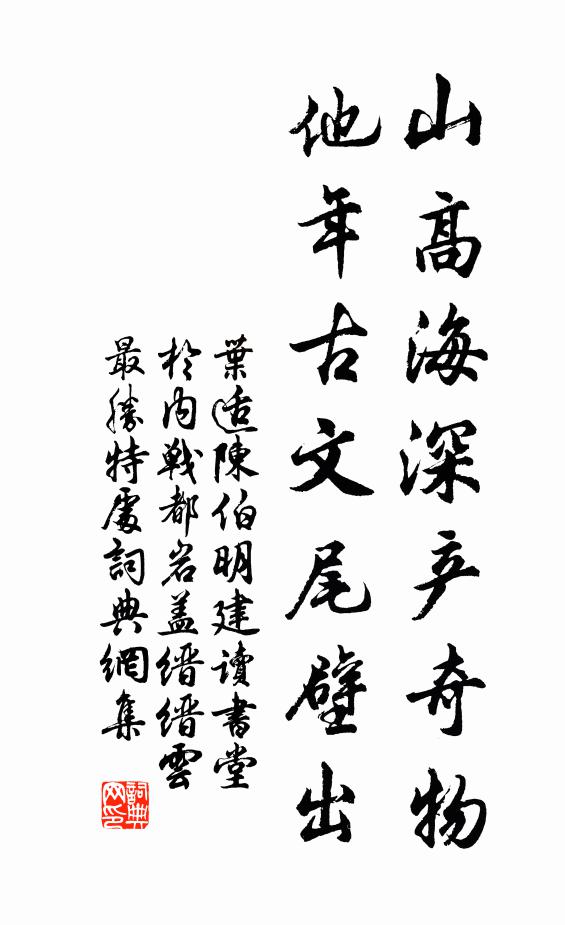 山高海深产奇物
他年古文尾壁出
葉适陳伯明建读書堂
於内戰都岩盖缙缙雲
最勝特處詞典網集
詞典
网印